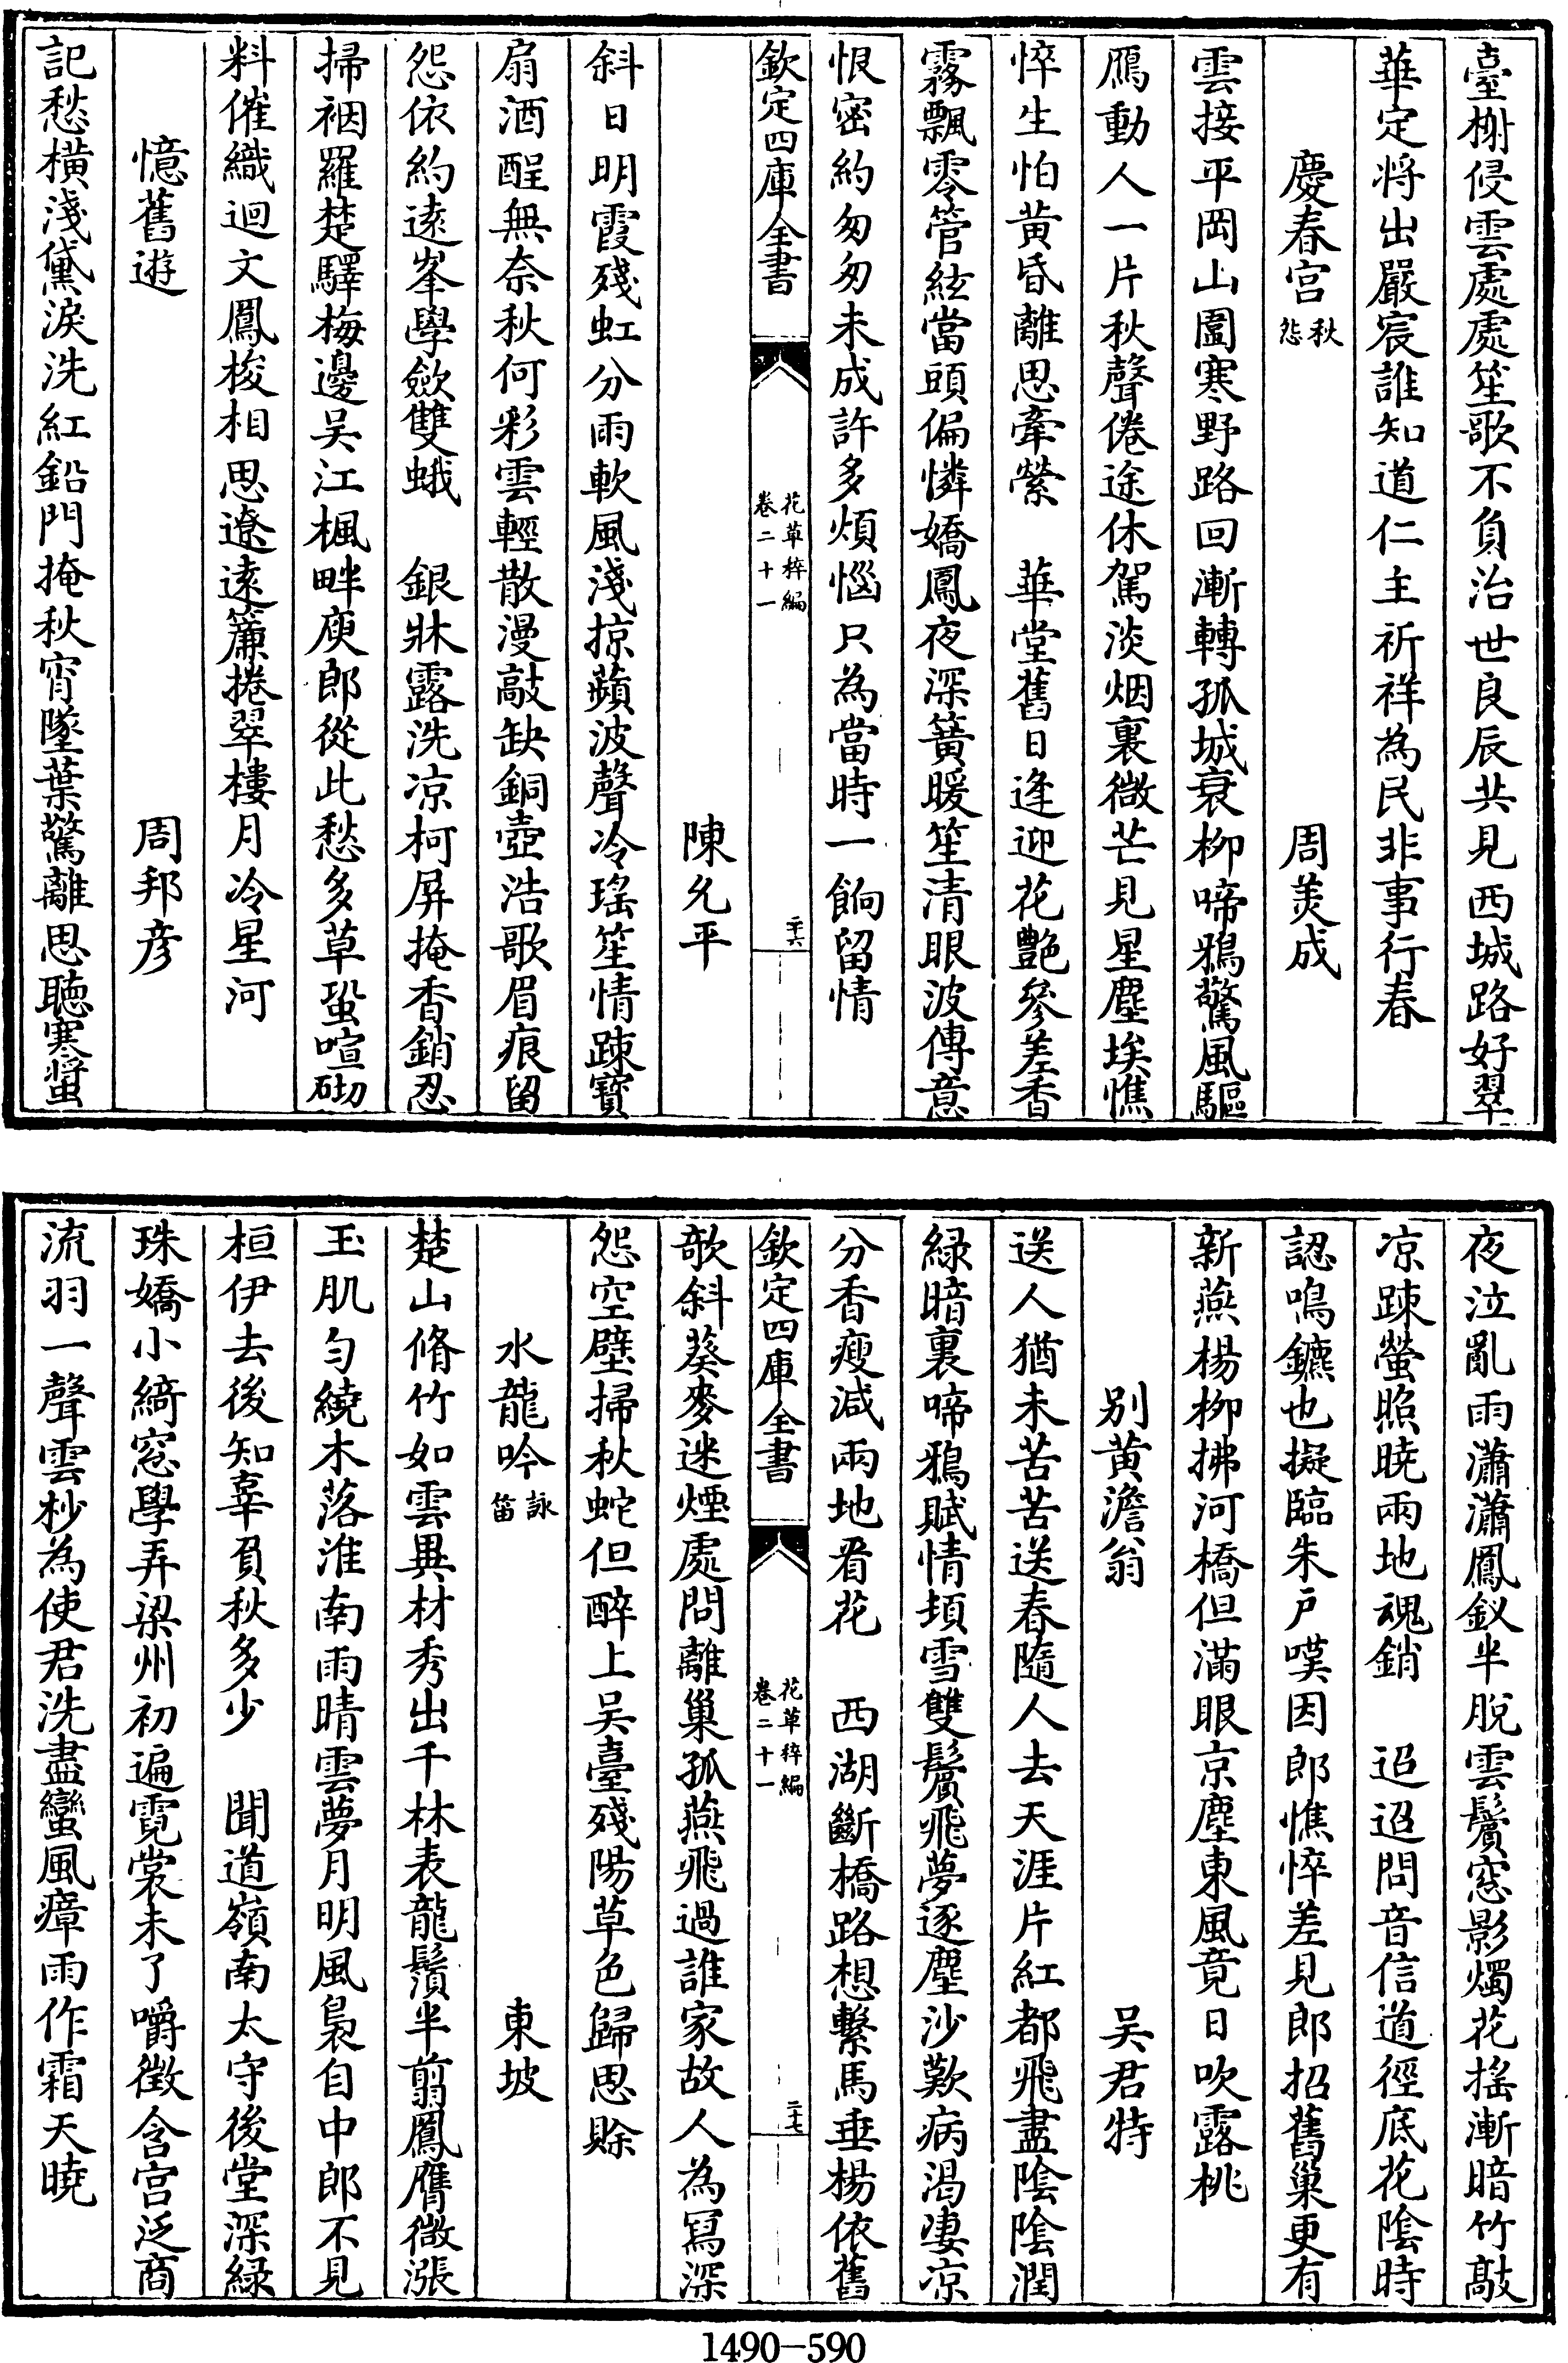 臺榭侵雲處處笙歌不負治世良辰共見西城路好翠
華定將出嚴宸誰知道仁主祈祥為民非事行春
慶春宮秋怨　周美成
雲接平岡山圍寒野路回漸轉孤城衰柳啼鴉驚風驅
鴈動人一片秋聲倦途休駕淡烟裏微茫見星塵埃憔
悴生怕黃昏離思牽縈　華堂舊日逢迎花艷參差香
霧飄零管絃當頭偏憐嬌鳳夜深簧暖笙清眼波傳意
恨密約匆匆未成許多煩惱只為當時一餉留情
欽定四庫全書　花草稡編卷二十一　二十六
陳允平
斜日明霞殘虹分雨軟風淺掠蘋波聲冷瑤笙情踈寶
扇酒酲無奈秋何彩雲輕散漫敲缺銅壺浩歌眉痕留
怨依約遠峯學歛雙蛾　銀牀露洗凉柯屏掩香銷忍
掃裀羅楚驛梅邊吳江楓畔庾郎從此愁多草蛩喧砌
料催織迴文鳳梭相思遼遠簾捲翠樓月冷星河
憶舊遊　周邦彥
記愁橫淺黛淚洗紅鉛門掩秋宵墜葉驚離思聽寒螿
夜泣亂雨瀟瀟鳳釵半脫雲鬢窓影燭花搖漸暗竹敲
凉踈螢照曉兩地魂銷　迢迢問音信道徑底花陰時
認鳴鑣也擬臨朱戶嘆因郎憔悴羞見郎招舊巢更有
新燕楊柳拂河橋但滿眼京塵東風竟日吹露桃
別黃澹翁　吳君特
送人猶未苦苦送春隨人去天涯片紅都飛盡陰陰潤
綠暗裏啼鴉賦情頓雪雙鬢飛夢逐塵沙歎病渴凄凉
分香瘦減兩地看花　西湖斷橋路想繫馬垂楊依舊
欽定四庫全書　花草稡編卷二十一　二十七
欹斜葵麥迷煙處問離巢孤燕飛過誰家故人為寫深
怨空壁掃秋蛇但醉上吳臺殘陽草色歸思賖
水龍吟詠笛　東坡
楚山脩竹如雲異材秀出千林表龍鬚半翦鳳膺微漲
玉肌勻繞木落淮南雨晴雲夢月明風裊自中郎不見
桓伊去後知辜負秋多少　聞道嶺南太守後堂深綠
珠嬌小綺窓學弄梁州初遍霓裳未了嚼徵含宮泛商
流羽一聲雲杪為使君洗盡蠻風瘴雨作霜天曉
1490-590